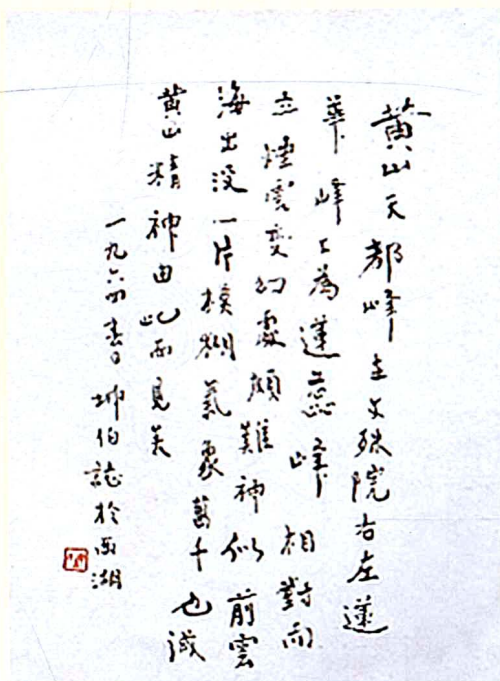 黄山天都峰在文殊院右左蓮
華峰上為蓮蕊峰相對而
立煙雲變幻處頗難神似前雲
海出沒一片模糊氣象萬千也誠
黄山精神由此而見矣
一九六四春日坤伯誌於西湖